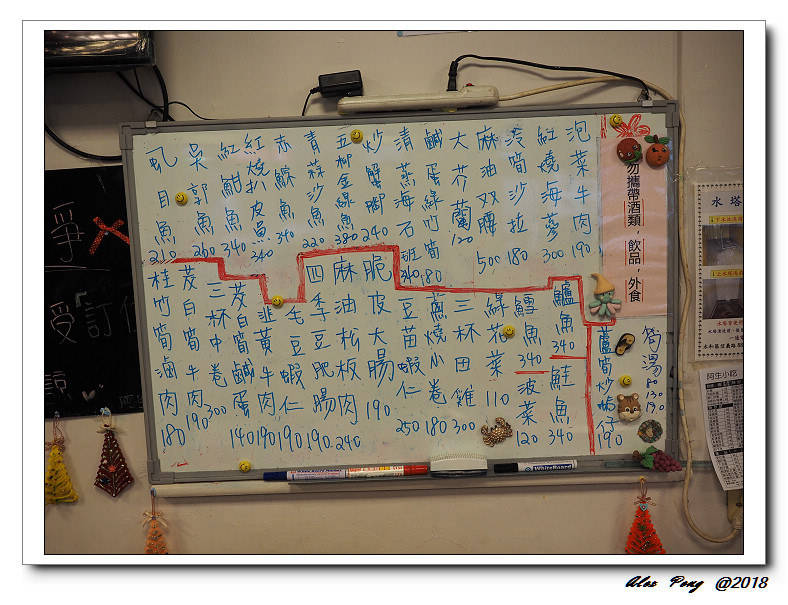 泡菜牛肉 190
紅燒海蔘 300
涼筍沙拉 180
麻油双腰 500
大芥蘭 120
鹹蛋綠竹筍 180
清蒸海石班 340
炒蟹腳 240
五柳金線魚 380
青蒜沙魚 220
赤鯮魚 340
紅燒扒皮魚 340
紅魽魚 340
吳郭魚 260
虱目魚 210
鱸魚 340
鮭魚 340
鱈魚 340
菠菜 120
綠花菜 110
三杯田雞 300
蔥燒小卷 180
豆苗蝦仁 250
脆皮大腸 190
麻油松板肉 240
四季肥腸 190
毛豆蝦仁 190
韭黃牛肉 190
茭白筍鹹蛋 140
三杯中卷 300
茭白筍牛肉 190
桂竹筍滷肉 180
勿攜帶酒類，飲品，外食
筍湯 80 130 190
蘆筍炒 190
WhiteBoard
水塔
阿生小吃
Alex Pong @2018